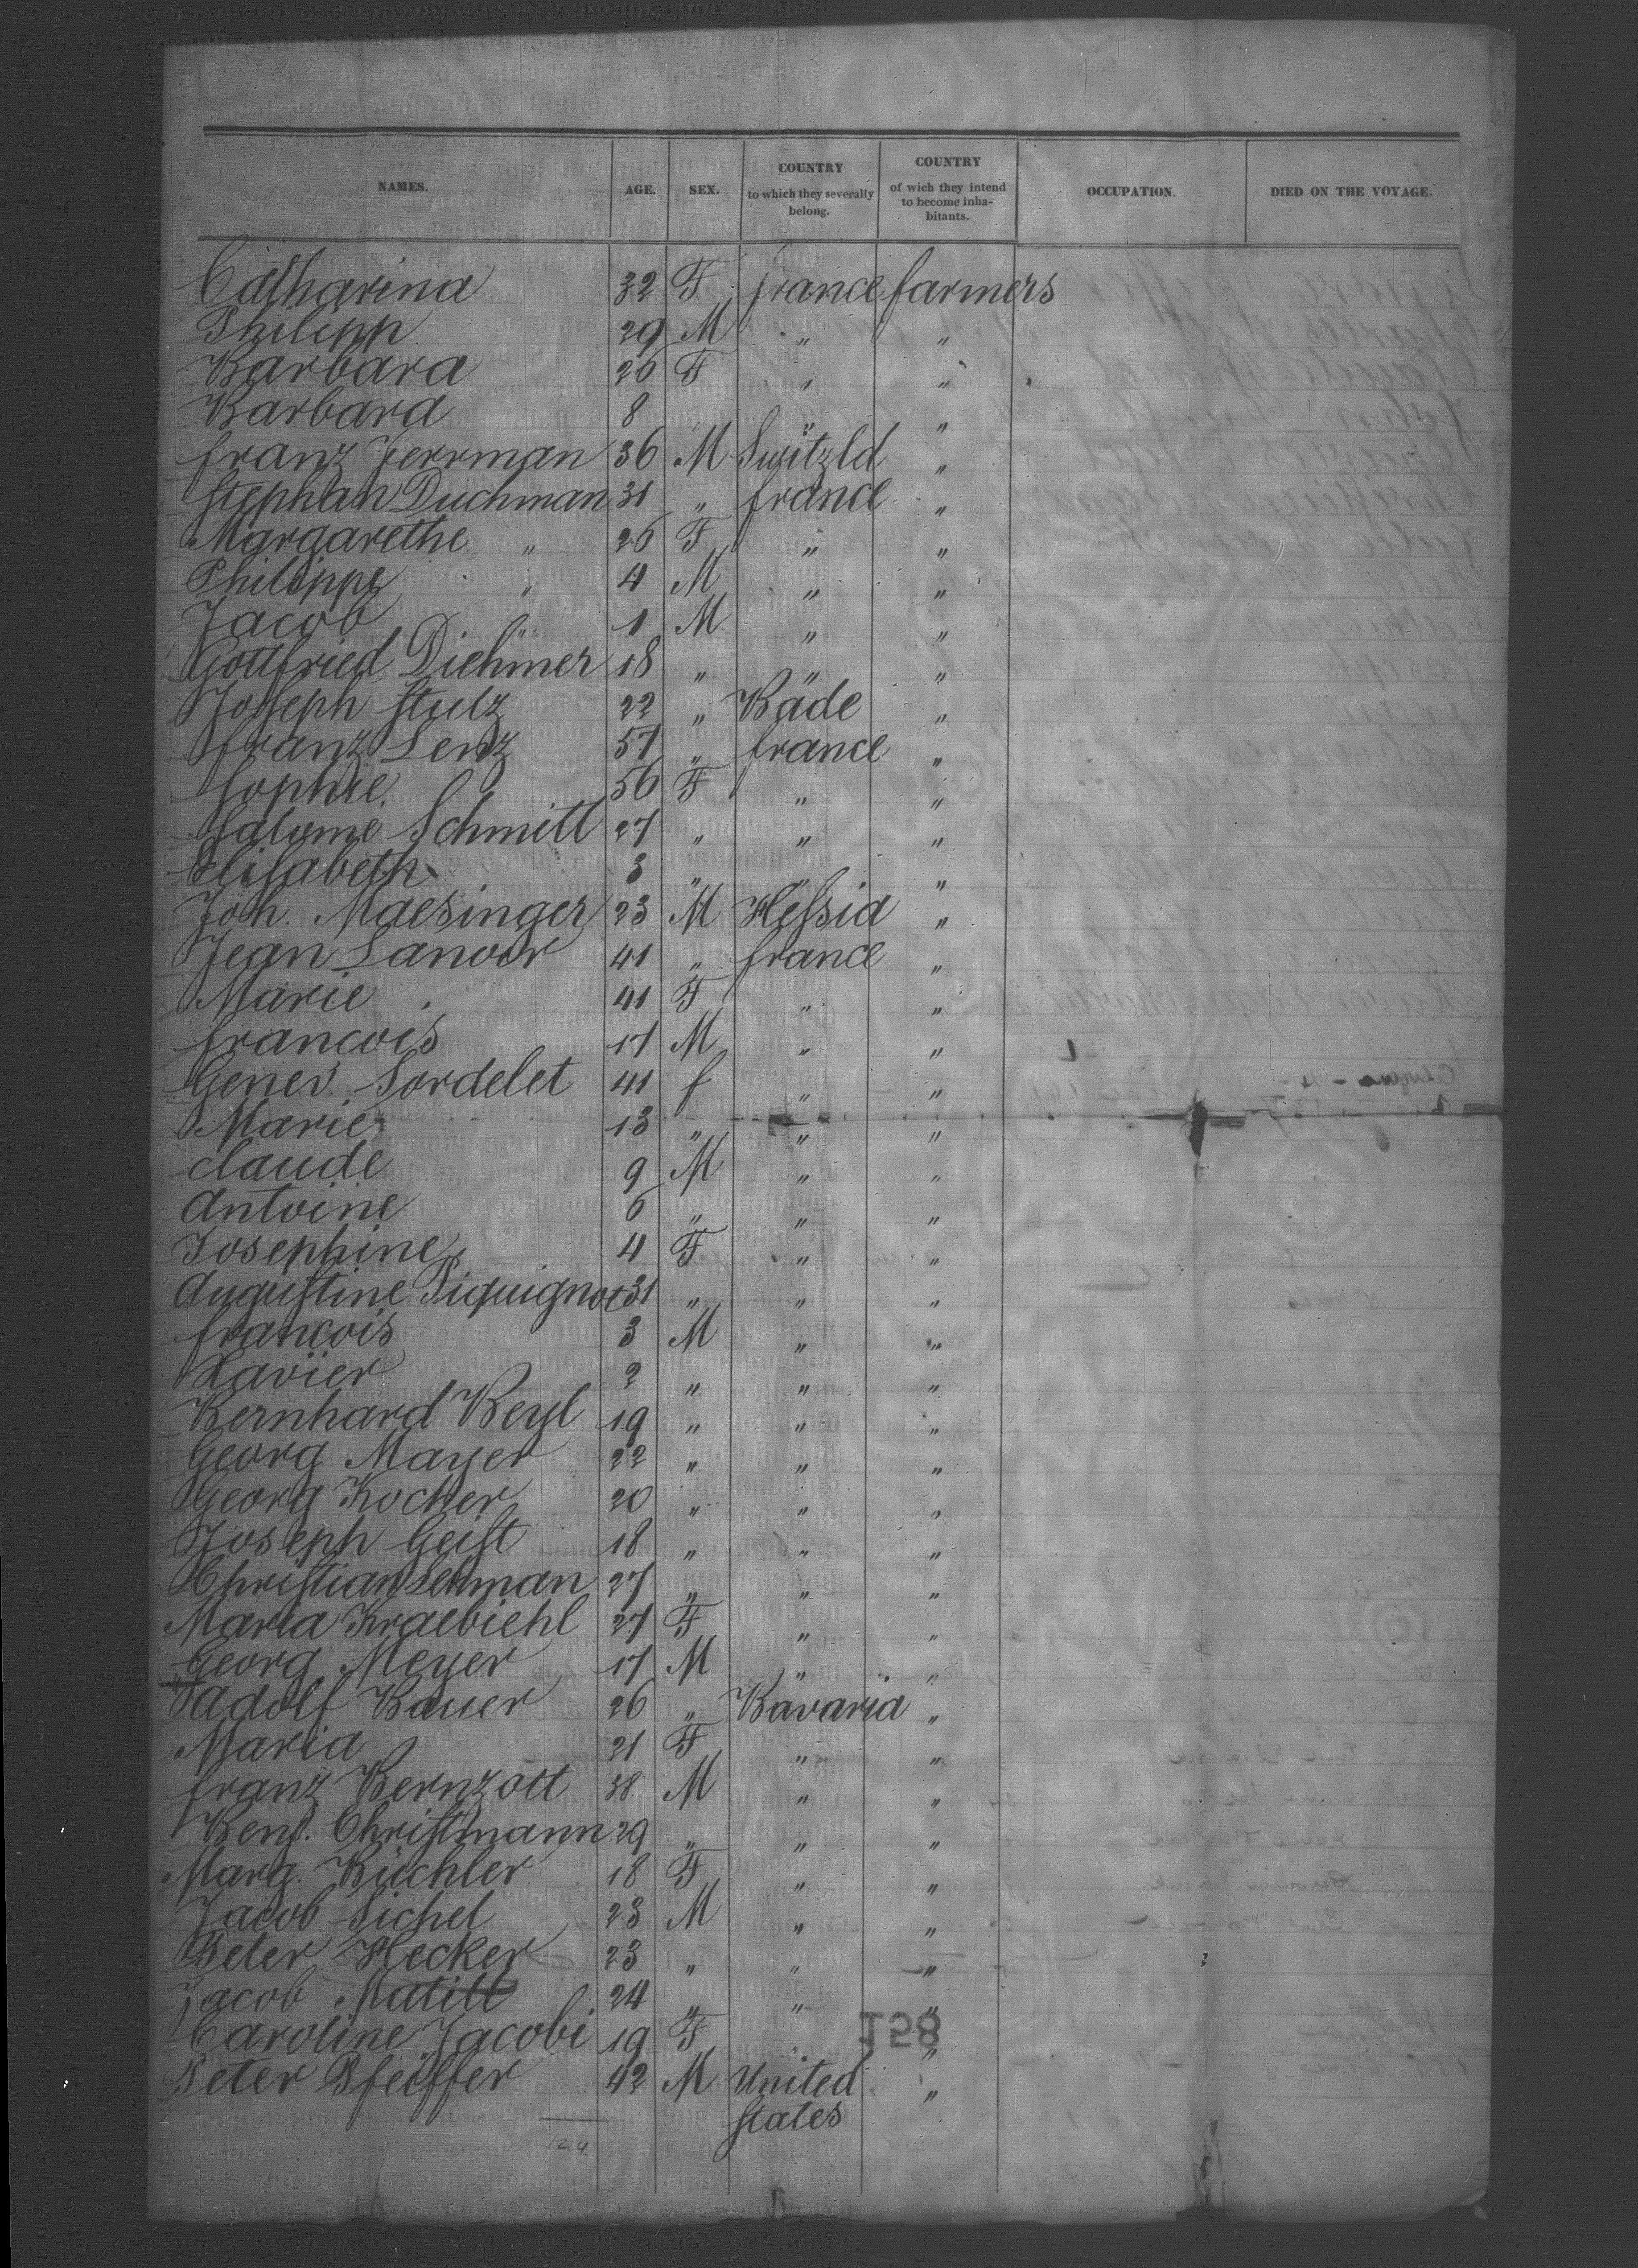 NAMES. AGE. SEX. COUNTRY to which they severally belong. COUNTRY of wich they intend to become inhabitants. OCCUPATION. DIED ON THE VOYAGE.
Catharina 32 F france farmers
Philipp 29 M " "
Barbara 26 F " "
Barbara 8 " "
franz Jerrman 36 M Switzld "
Stephan Duchman 31 " france "
Margarethe " 26 F " "
Philippe " 4 M " "
Jacob " 1 M " "
Gottfried Diehmer 18 " " "
Joseph Stulz 22 " Bade "
franz Lenz 57 " france "
Sophie 56 F " "
Salome Schmitt 27 " " "
Elisabeth 3 " " "
Joh. Maesinger 23 M Hessia "
Jean Lanoir 41 " france "
Marie 41 F " "
francois 17 M " "
Genev. Sordelet 41 f " "
Marie 13 " " "
claude 9 M " "
Antoine 6 " " "
Josephine 4 F " "
Augustine Piquignot 31 " " "
francois 3 M " "
Xavier 2 " " "
Bernhard Beyl 19 " " "
Georg Mayer 22 " " "
Georg Kocher 20 " " "
Joseph Geist 18 " " "
Christian Lehman 27 " " "
Maria Kraebiehl 27 F " "
Georg Meyer 17 M " "
Adolf Bauer 26 " Bavaria "
Maria 21 F " "
franz Bernzott 38 M " "
Benj. Christmann 29 " " "
Marg. Büchler 18 F " "
Jacob Sichel 23 M " "
Peter Hecker 23 " " "
Jacob Matill 24 " " "
Caroline Jacobi 19 F " "
Peter Pfeiffer 42 M United "
States
124
158